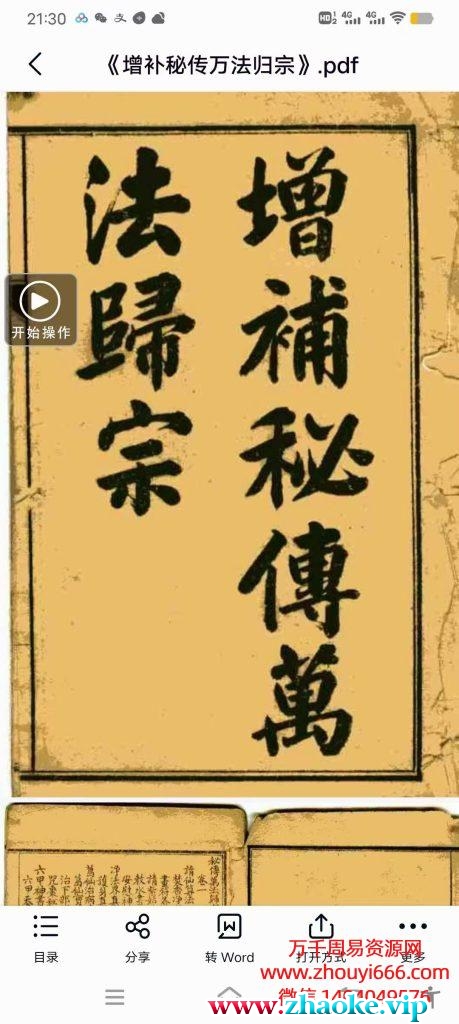 21:30
HD 1 2 4G 4G
《增补秘传万法归宗》.pdf
增補秘傳萬
法歸宗
开始操作
秘傳萬法歸
卷一
目录
分享
转 Word
打开方式
更多
万千周易资源网
www.zhouyi666.com
www.zhaoke.vip